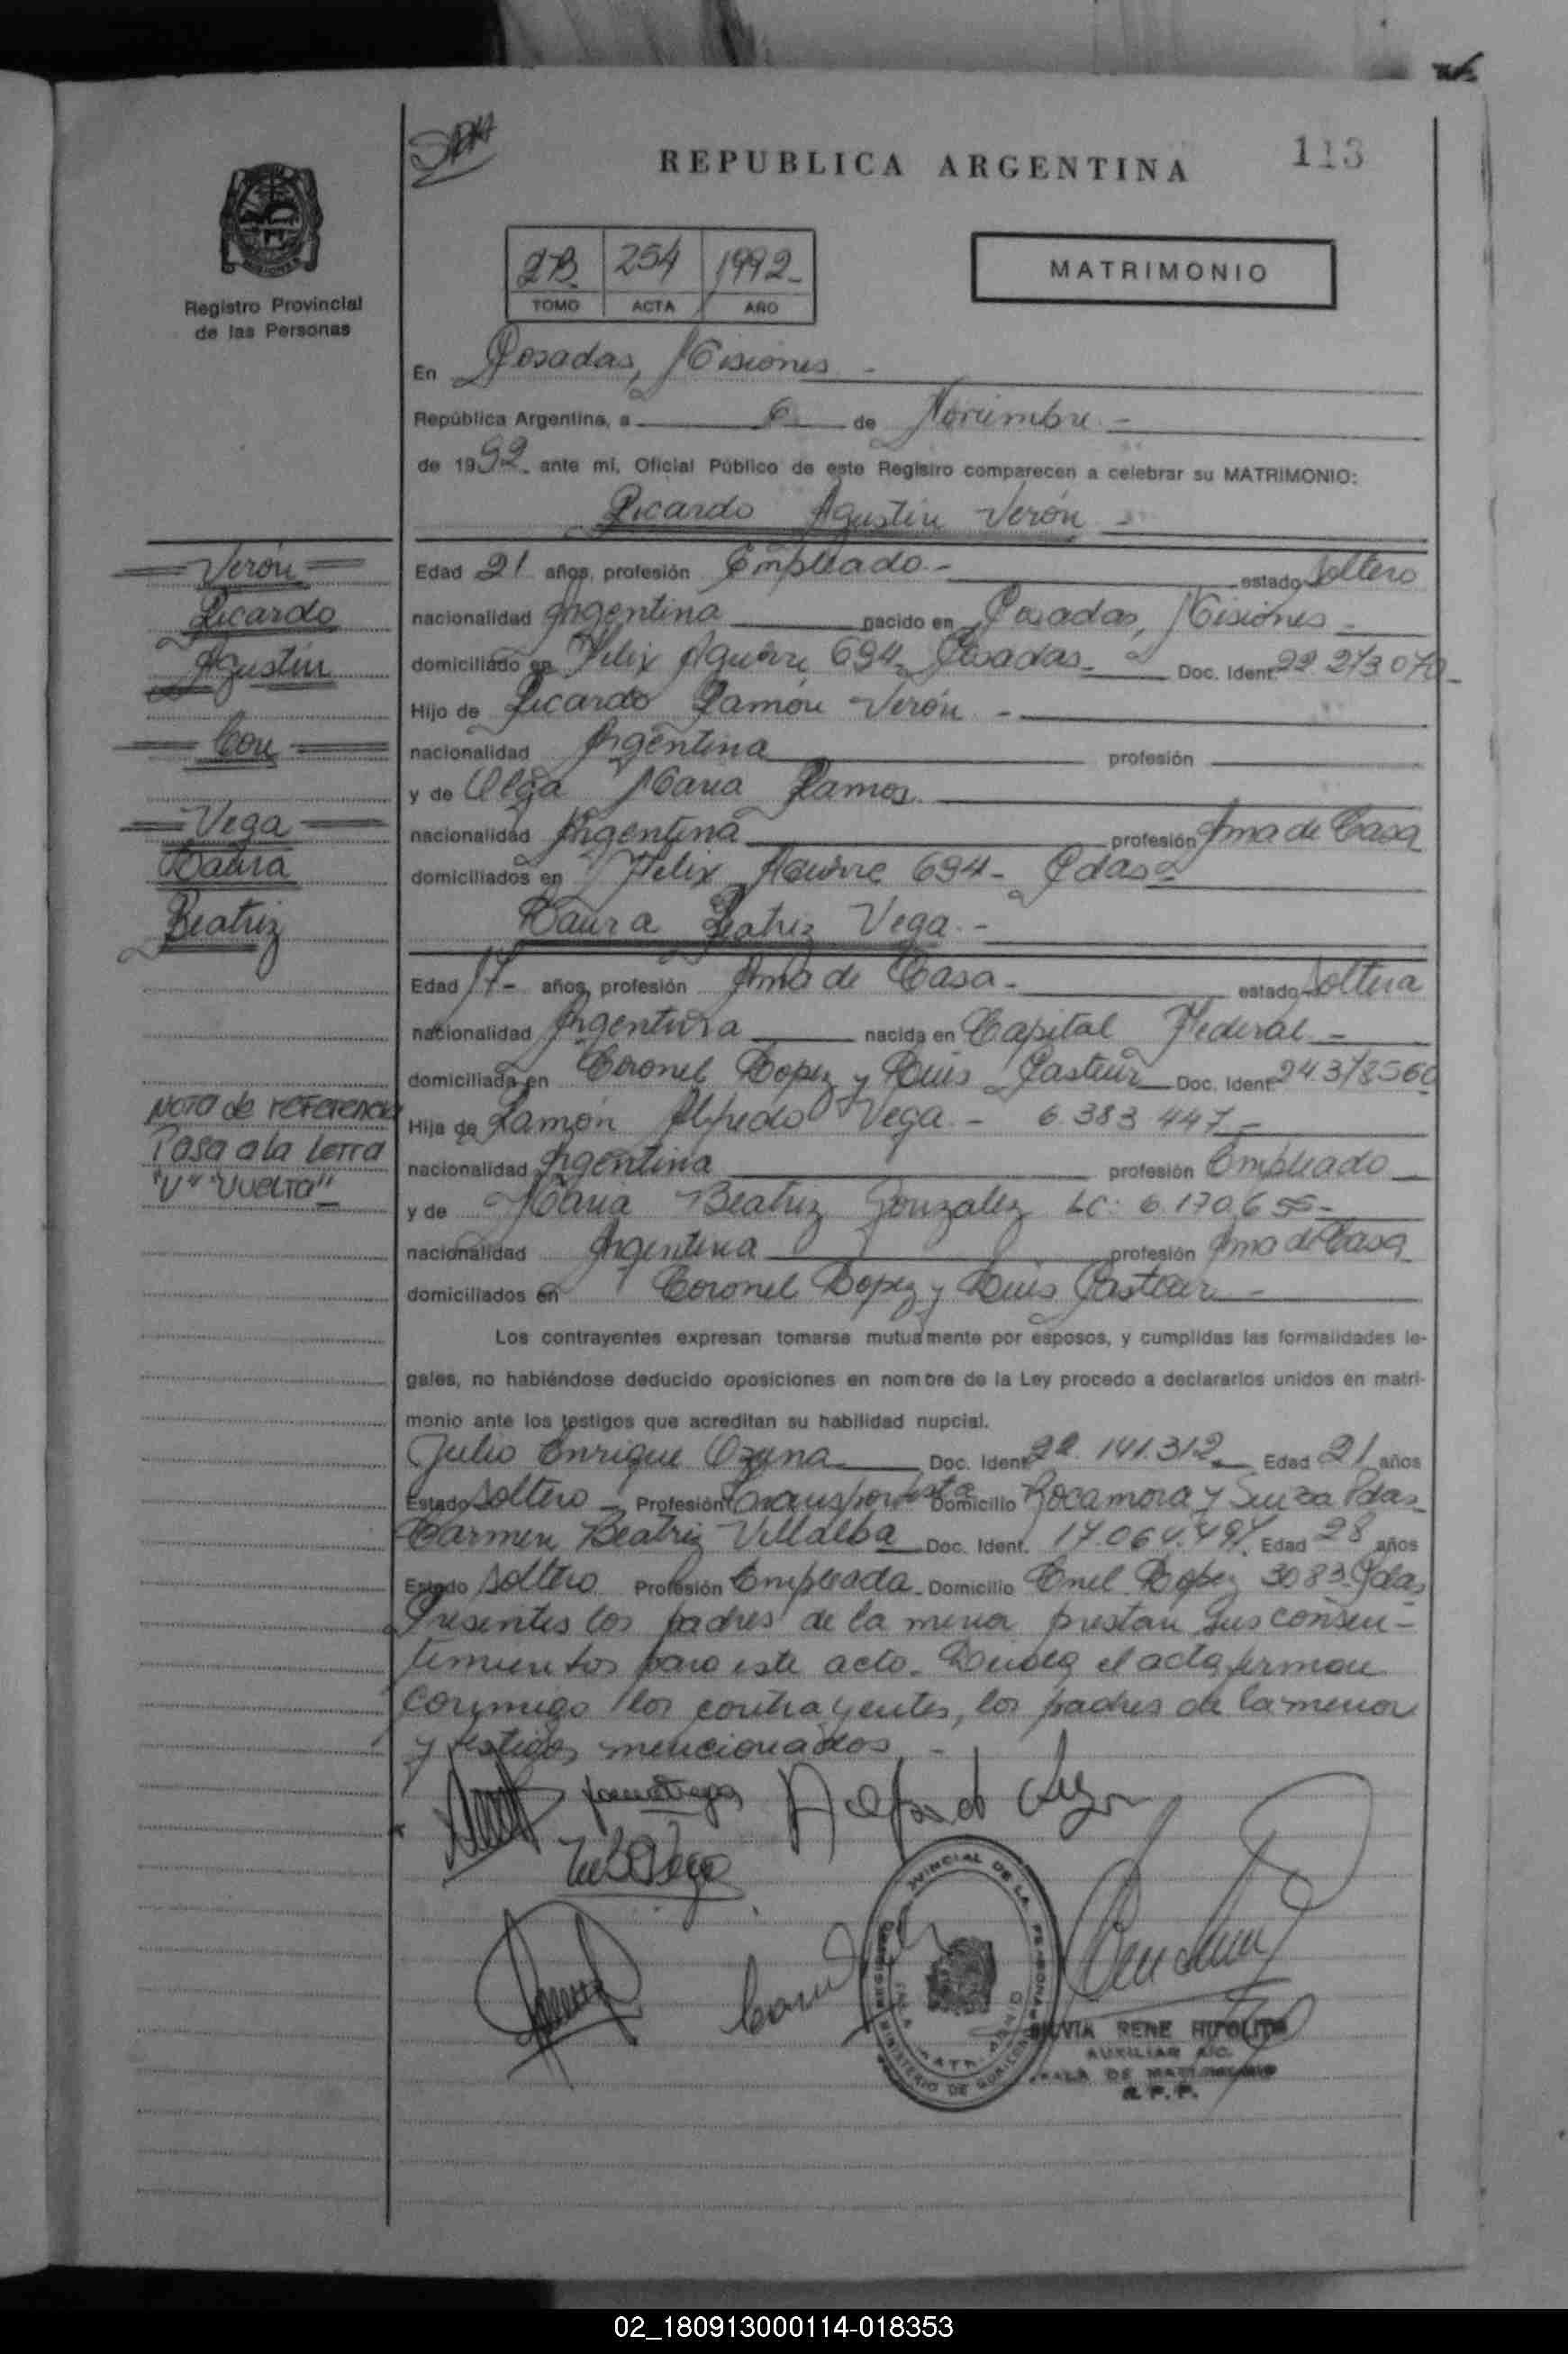 REPUBLICA ARGENTINA
113
Registro Provincial
de las Personas
2B 254 1992-
TOMO ACTA AÑO
MATRIMONIO
En Posadas, Misiones -
República Argentina, a 6 de Noviembre -
de 1992- ante mí, Oficial Público de este Registro comparecen a celebrar su MATRIMONIO:
Ricardo Agustín Verón -
Verón
Ricardo
Agustín
Con
Vega
Laura
Beatriz
Nota de referencia
Pasa a la letra
"V" "Vuelta"
Edad 21 años, profesión Empleado - estado Soltero
nacionalidad Argentina nacido en Posadas, Misiones -
domiciliado en Felix Aguirre 694- Posadas- Doc. Ident. 22.273.070-
Hijo de Ricardo Ramón Verón -
nacionalidad Argentina profesión
y de Olga Maria Ramos
nacionalidad Argentina profesión Ama de Casa
domiciliados en Felix Aguirre 694- Pdas-
Laura Beatriz Vega -
Edad 17- años, profesión Ama de Casa - estado Soltera
nacionalidad Argentina nacida en Capital Federal -
domiciliada en Coronel Lopez y Luis Pasteur Doc. Ident. 24.378560
Hija de Ramón Alfredo Vega - 6.383.447-
nacionalidad Argentina profesión Empleado
y de Maria Beatriz Gonzalez LC: 6.170.655-
nacionalidad Argentina profesión Ama de Casa
domiciliados en Coronel Lopez y Luis Pasteur -
Los contrayentes expresan tomarse mutuamente por esposos, y cumplidas las formalidades le-
gales, no habiéndose deducido oposiciones en nombre de la Ley procedo a declararlos unidos en matri-
monio ante los testigos que acreditan su habilidad nupcial.
Julio Enrique Ozuna Doc. Ident. 22.141.312- Edad 21 años
Estado Soltero - Profesión Transportista Domicilio Rocamora y Suiza Pdas-
Carmen Beatriz Villalba Doc. Ident. 17.064.497. Edad 28 años
Estado Soltero Profesión Empleada- Domicilio Cnel Lopez 3083. Pdas
Presentes los padres de la menor prestan sus consen-
timientos para este acto- Leida el acta firman
conmigo los contrayentes, los padres de la menor
y testigos mencionados. -
SILVIA RENE HIPOLITO
AUXILIAR A/C.
SALA DE MATRIMONIO
R.P.P.
02_180913000114-018353